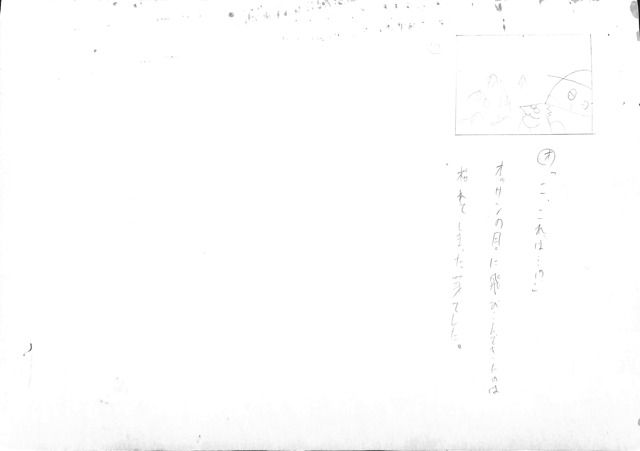 オ「こ、これは…!?」
オッサンの目に飛びこんできたのは
枯れてしまった芽でした。